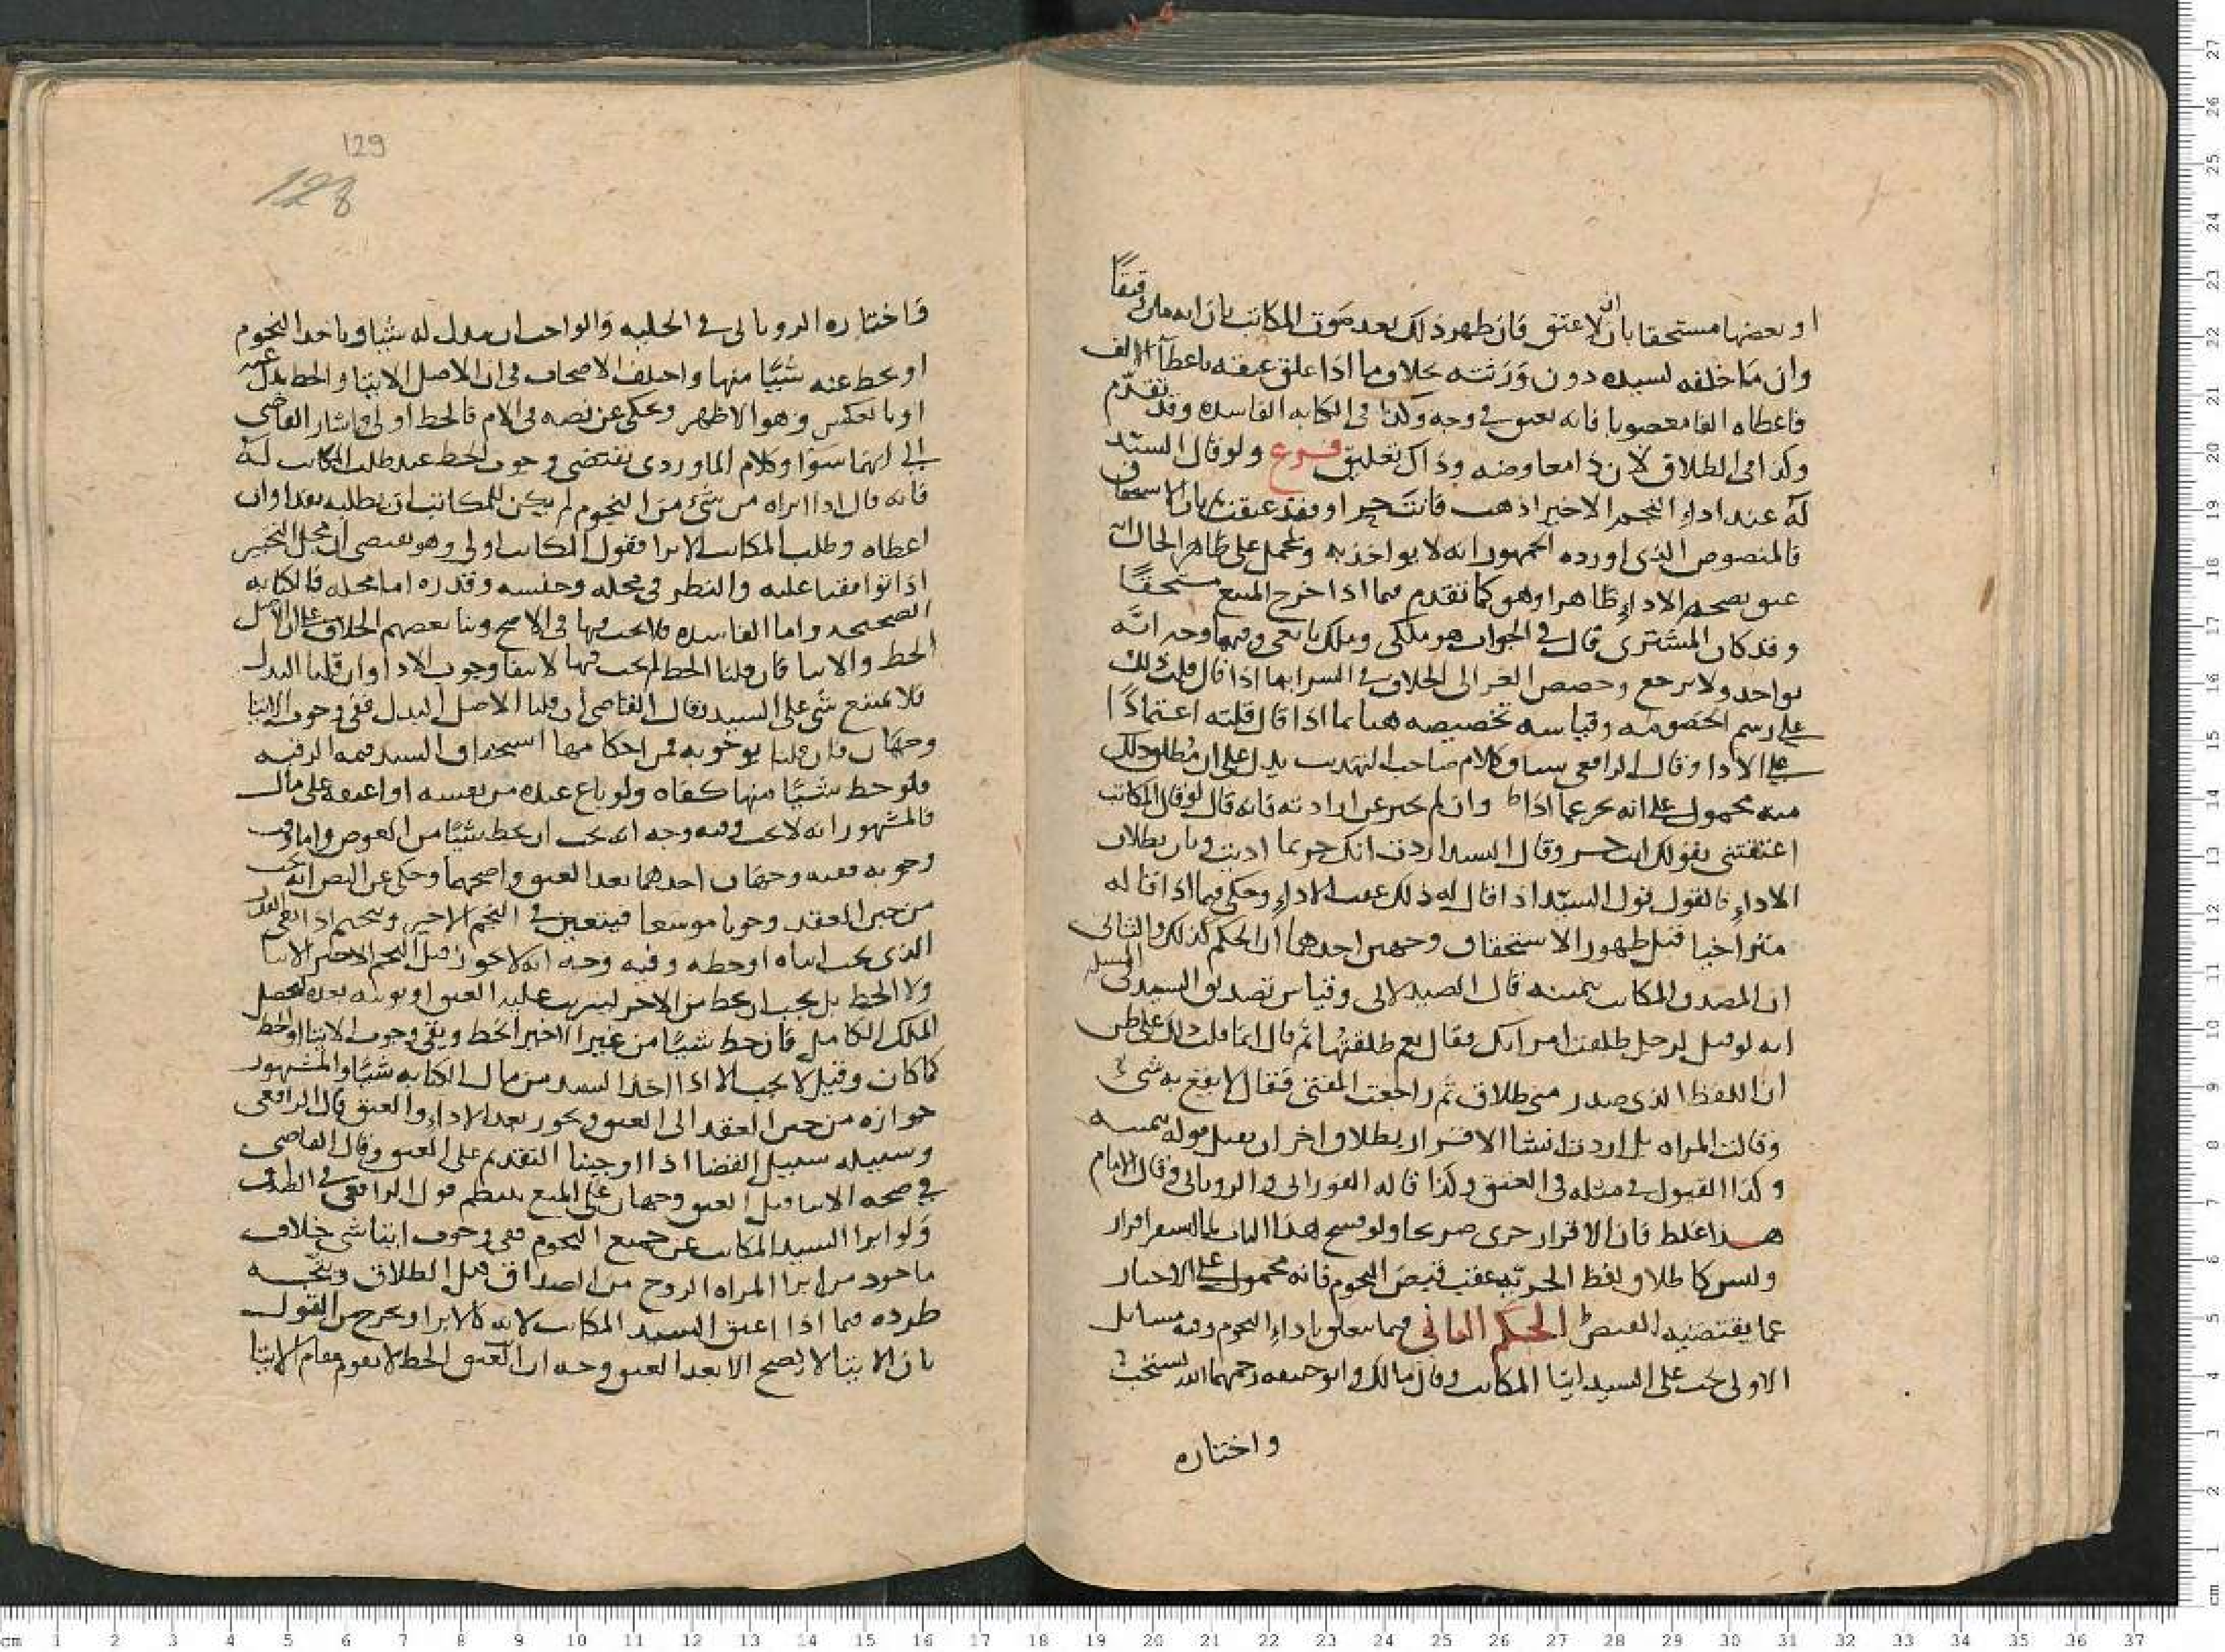 او بعضها مستحقا بان ان لا عتق فان ظهر ذلك بعد موت المكاتب بان انه مات رقيقًا
وان ما خلفه لسيده دون ورثته بخلاف ما اذا علق عتقه باعطآ الالف
فاعطاه الفا مغصوبا فانه يعتق في وجه وكذا في الكتابه الفاسده وقد تقدّم
وكذا في الطلاق لان ذا معاوضه وذاك تعليق فرع ولو قال السيّد
له عند اداء النجم الاخير اذهب فانت حر او فقد عتقت بان الاستحقاق
فالمنصوص الذي اورده الجمهور انه لا يواخذ به ويحمل على ظاهر الحال انه
عتق بصحه الاداء ظاهرا وهو كما تقدم فيما اذا خرج المبيع مستحقًا
وقد كان المشتري قال في الجواب هو ملكي وملك بايعي وفيهما وجه انَّه
يواخذ ولا يرجع وخصص الغز الى الخلاف في السرايه اذا قال ذلك
على رسم الخصومه وقياسه تخصيصه هنا بما اذا قال قلته اعتمادًا
على الادا وقال الرافعي سياق كلام صاحب التهذيب يدل على ان مطلق ذلك
منه محمول على انه حر بما ادا وان لم يخبر عن ارادته فانه قال لو قال المكاتب
اعتقتني بقولك انت حر وقال السيد اردت انك حر بما اديت وبان بطلان
الاداء فالقول قول السيّد اذا قال له ذلك عقب الاداء وحكى فيما اذا قاله
متراخيا قبل ظهور الاستحقاق وجهين احدهما ان الحكم كذلك والثاني
ان المصدق المكاتب بيمينه قال الصيدلاني وقياس تصديق السيد في المسله
انه لو قيل لرجل طلقت امراتك فقال نعم طلقتها ثم قال انما قلت ذلك على ظن
ان اللفظ الذي صدر مني طلاق ثم راجعت المفتي فقال لا يقع به شيء
وقالت المراه بل اردت انشا الاقرار بطلاق اخر ان يقبل قوله بيمينه
وكذا القبول في مثله في العتق وكذا قاله الفوراني والروياني وقال الامام
هذا غلط فان الاقرار جرى صريحا ولو فتح هذا الباب لما استقر اقرار
وليس كاطلاق لفظ الحريّه عقب قبض النجوم فانه محمول على الاخبار
عما يقتضيه القبض الحكم الثاني فيما يتعلق باداء النجوم وفيه مسايل
الاولى يجب على السيد ايتا المكاتب وقال مالك وابو حنيفه رحمهما الله يستحب
واختاره
129
128
فاختاره الروياني في الحليه والواجب ان يبدل له شيًا وياخذ النجوم
او يحط عنه شيًا منها واختلف الاصحاب في ان الاصل الايتا والحط بدل عنه
او بالعكس وهو الاظهر وحكي عن نصه في الام فالحط اولى واشار القاضي
الى انهما سوا وكلام الماوردي يقتضي وجوب الحط عند طلب المكاتب له
فانه قال اذا ابراه من شيء من النجوم لم يكن للمكاتب ان يطلبه بغدا وان
اعطاه وطلب المكاتب الابرا فقول المكاتب اولى وهو يقتضي ان محل التخيير
اذا توافقا عليه والنظر في محله وجنسه وقدره اما محله فالكتابه
الصحيحه واما الفاسده فلا يجب فيها في الاصح وبنا بعضهم الخلاف على ان الاصل
الحط والايتا فان قلنا الحط لم يجب فيها لانتفا وجوب الادا وان قلنا البدل
فلا يمتنع شي على السيد وقال القاضي ان قلنا الاصل البدل ففي وجوب الايتا
وجهان فان قلنا بوجوبه فمن احكامها استحقاق السيد قيمه الرقبه
فلو حط شيًا منها كفاه ولو باع عبده من نفسه او اعتقه على مال
فالمشهور انه لا يجب وفيه وجه انه يجب ان يحط شيًا من العوض واما وقت
وجوبه ففيه وجهان احدهما بعد العتق واصحهما وحكى عن النص انه يجب
من حين العقد وجوبا موسعا فيتعين في النجم الاخير ويتحتم اذا بقي القدر
الذي يجب ايتاه او حطه وفيه وجه انه لا يجوز قبل النجم الاخير الايتا
ولا الحط بل يجب ان يحط من الاخر ليترتب عليه العتق او يوتيه بعده ليحصل
الملك الكامل فان حط شيًا من غير الاخير انحط وبقي وجوب الايتا او الحط
كما كان وقيل لا يجب الا اذا اخذ السيد من مال الكتابه شيًا والمشهور
جوازه من حين العقد الى العتق ويجوز بعد الاداء والعتق قال الرافعي
وسبيله سبيل القضا اذا اوجبنا التقديم على العتق وقال القاضي
في صحه الايتا قبل العتق وجهان على المنع ينتظم قول الرافعي في الطرف
ولو ابرا السيد المكاتب عن جميع النجوم ففي وجوب ايتا شي خلاف
ماخوذ من ابرا المراه الزوج من الصداق قبل الطلاق ويتّجه
طرده فيما اذا اعتق السيد المكاتب لانه كالابرا ويخرج من القول
بان الايتا لا يصح الا بعد العتق وجه ان العتق الحط لا يقوم مقام الايتا